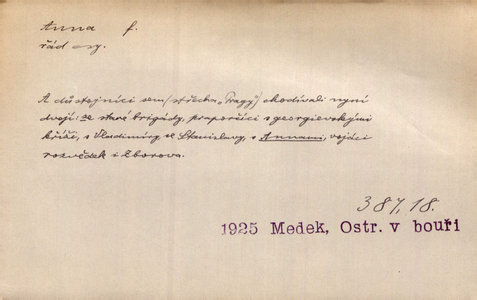 Anna f.
řád
A důstojníci sem (střecha „Pragy“) chodívali nyní
dvojí: ze staré brigády, praporčíci s georgievskými
kříži, s Vladimíry, se Stanislavy, s Annami, vojáci
rozvědek i Zborova.
387, 18.
1925 Medek, Ostr. v bouři